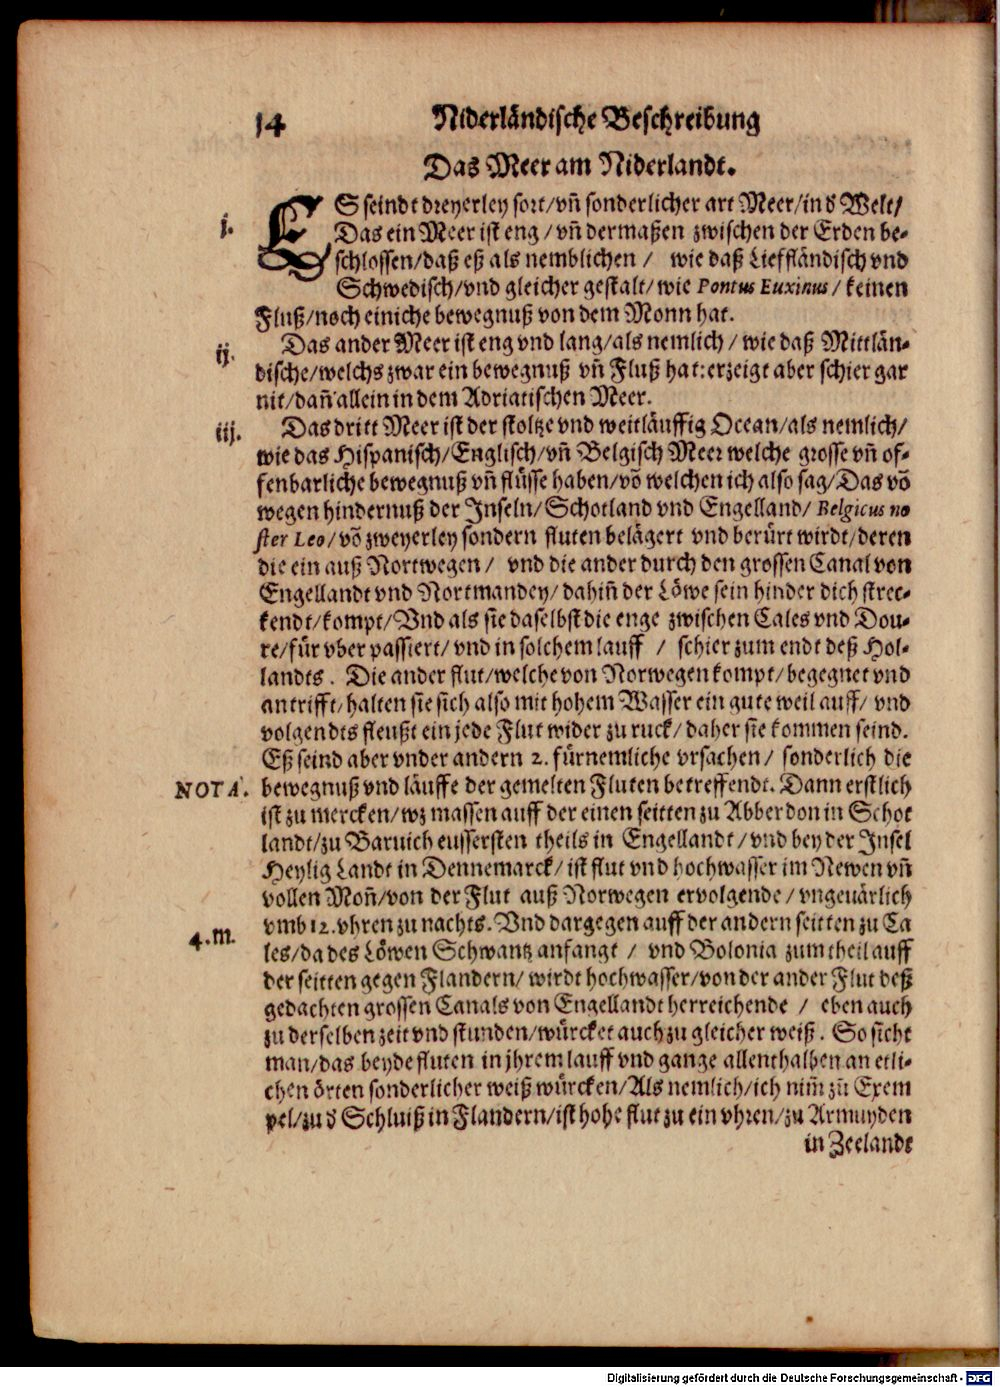 14 Niderländische Beschreibung
Das Meer am Niderlandt.
j. ES seindt dreyerley sort/ vñ sonderlicher art Meer/ in ď Welt/
Das ein Meer ist eng / vñ dermaßen zwischen der Erden be-
schlossen/ daß eß als nemblichen / wie daß Lieffländisch vnd
Schwedisch/ vnd gleicher gestalt/ wie Pontus Euxinus / keinen
Fluß/ noch einiche bewegnuß von dem Monn hat.
ij. Das ander Meer ist eng vnd lang/ als nemlich / wie daß Mittlän-
dische/ welchs zwar ein bewegnuß vñ Fluß hat: erzeigt aber schier gar
nit/ dañ allein in dem Adriatischen Meer.
iij. Das dritt Meer ist der stoltze vnd weitläuffig Ocean/ als nemlich/
wie das Hispanisch/ Englisch/ vñ Belgisch Meer welche grosse vñ of-
fenbarliche bewegnuß vñ flüsse haben/ võ welchen ich also sag/ Das võ
wegen hindernuß der Inseln/ Schotland vnd Engelland/ Belgicus no
ster Leo/ võ zweyerley sondern fluten belägert vnd berürt wirdt/ deren
die ein auß Nortwegen / vnd die ander durch den grossen Canal von
Engellandt vnd Nortmandey/ dahiñ der Löwe sein hinder dich strec-
kendt/ kompt/ Vnd als sie daselbst die enge zwischen Cales vnd Dou-
re/ für vber passiert/ vnd in solchem lauff / schier zum endt deß Hol-
landts . Die ander flut/ welche von Norwegen kompt/ begegnet vnd
antrifft/ halten sie sich also mit hohem Wasser ein gute weil auff/ vnd
volgendts fleußt ein jede Flut wider zu ruck/ daher sie kommen seind.
Eß seind aber vnder andern 2. fürnemliche vrsachen/ sonderlich die
NOTA. bewegnuß vnd läuffe der gemelten Fluten betreffendt. Dann erstlich
ist zu mercken/ wz massen auff der einen seitten zu Abberdon in Schot
landt/ zu Baruich eussersten theils in Engellandt / vnd bey der Insel
Heylig Landt in Dennemarck/ ist flut vnd hochwasser im Newen vñ
vollen Moñ/ von der Flut auß Norwegen ervolgende / vngeuärlich
vmb 12. vhren zu nachts. Vnd dargegen auff der andern seitten zu Ca
4.m. les/ da des Löwen Schwantz anfangt / vnd Bolonia zum theil auff
der seitten gegen Flandern/ wirdt hochwasser/ von der ander Flut deß
gedachten grossen Canals von Engellandt herreichende / eben auch
zu derselben zeit vnd stunden/ würcket auch zu gleicher weiß . So sicht
man/ das beyde fluten in jhrem lauff vnd gange allenthalben an etli-
chen örten sonderlicher weiß würcken/ Als nemlich/ ich nim̃ zũ Exem
pel/ zu ď Schluiß in Flandern/ ist hohe flut zu ein vhren/ zu Armuyden
in Zeelandt
Digitalisierung gefördert durch die Deutsche Forschungsgemeinschaft - DFG